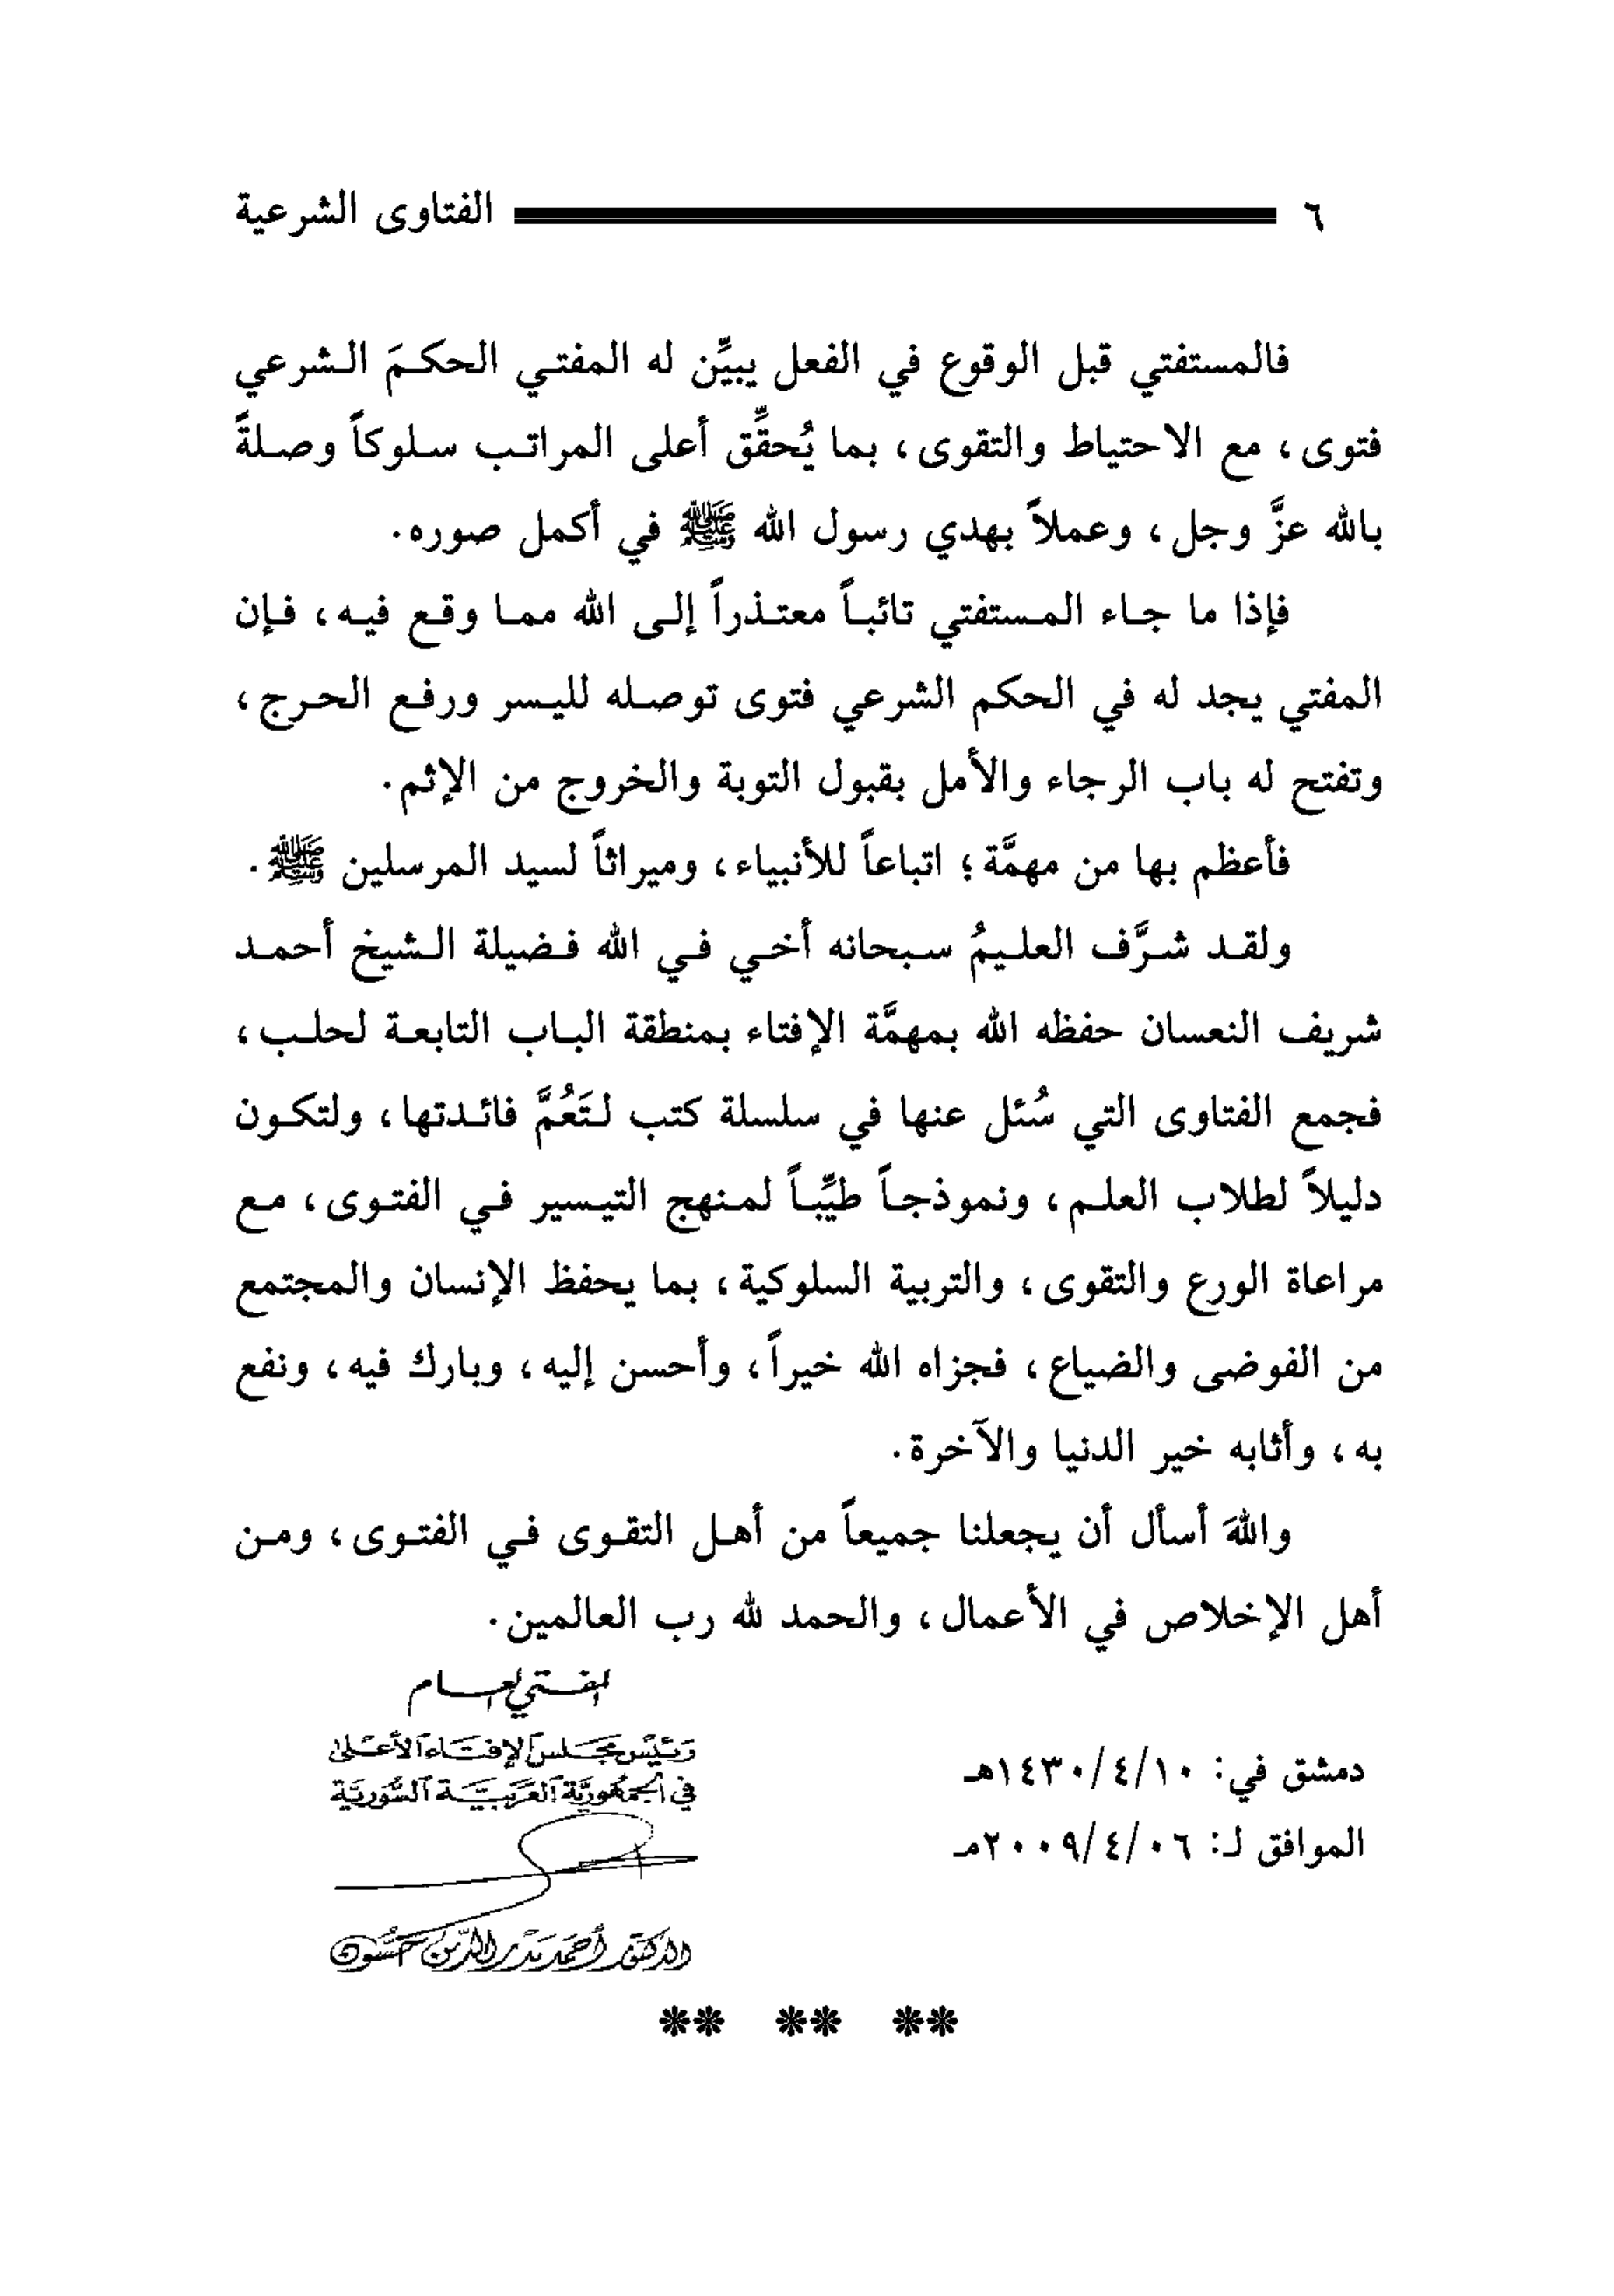 ٦ الفتاوى الشرعية
فالمستفتي قبل الوقوع في الفعل يبيِّن له المفتي الحكمَ الشرعي
فتوى، مع الاحتياط والتقوى، بما يُحقِّق أعلى المراتب سلوكاً وصلةً
بالله عزَّ وجل، وعملاً بهدي رسول الله ﷺ في أكمل صوره.
فإذا ما جاء المستفتي تائباً معتذراً إلى الله مما وقع فيه، فإن
المفتي يجد له في الحكم الشرعي فتوى توصله لليسر ورفع الحرج،
وتفتح له باب الرجاء والأمل بقبول التوبة والخروج من الإثم.
فأعظم بها من مهمَّة؛ اتباعاً للأنبياء، وميراثاً لسيد المرسلين ﷺ.
ولقد شرَّف العليمُ سبحانه أخي في الله فضيلة الشيخ أحمد
شريف النعسان حفظه الله بمهمَّة الإفتاء بمنطقة الباب التابعة لحلب،
فجمع الفتاوى التي سُئل عنها في سلسلة كتب لتَعُمَّ فائدتها، ولتكون
دليلاً لطلاب العلم، ونموذجاً طيِّباً لمنهج التيسير في الفتوى، مع
مراعاة الورع والتقوى، والتربية السلوكية، بما يحفظ الإنسان والمجتمع
من الفوضى والضياع، فجزاه الله خيراً، وأحسن إليه، وبارك فيه، ونفع
به، وأثابه خير الدنيا والآخرة.
واللهَ أسأل أن يجعلنا جميعاً من أهل التقوى في الفتوى، ومن
أهل الإخلاص في الأعمال، والحمد لله رب العالمين.
دمشق في: ١٤٣٠/٤/١٠هـ
الموافق لـ: ٢٠٠٩/٤/٠٦مـ
المفتي العام
رئيس مجلس الإفتاء الأعلى
في الجمهورية العربية السورية
الدكتور أحمد بدر الدين حسون
** ** **